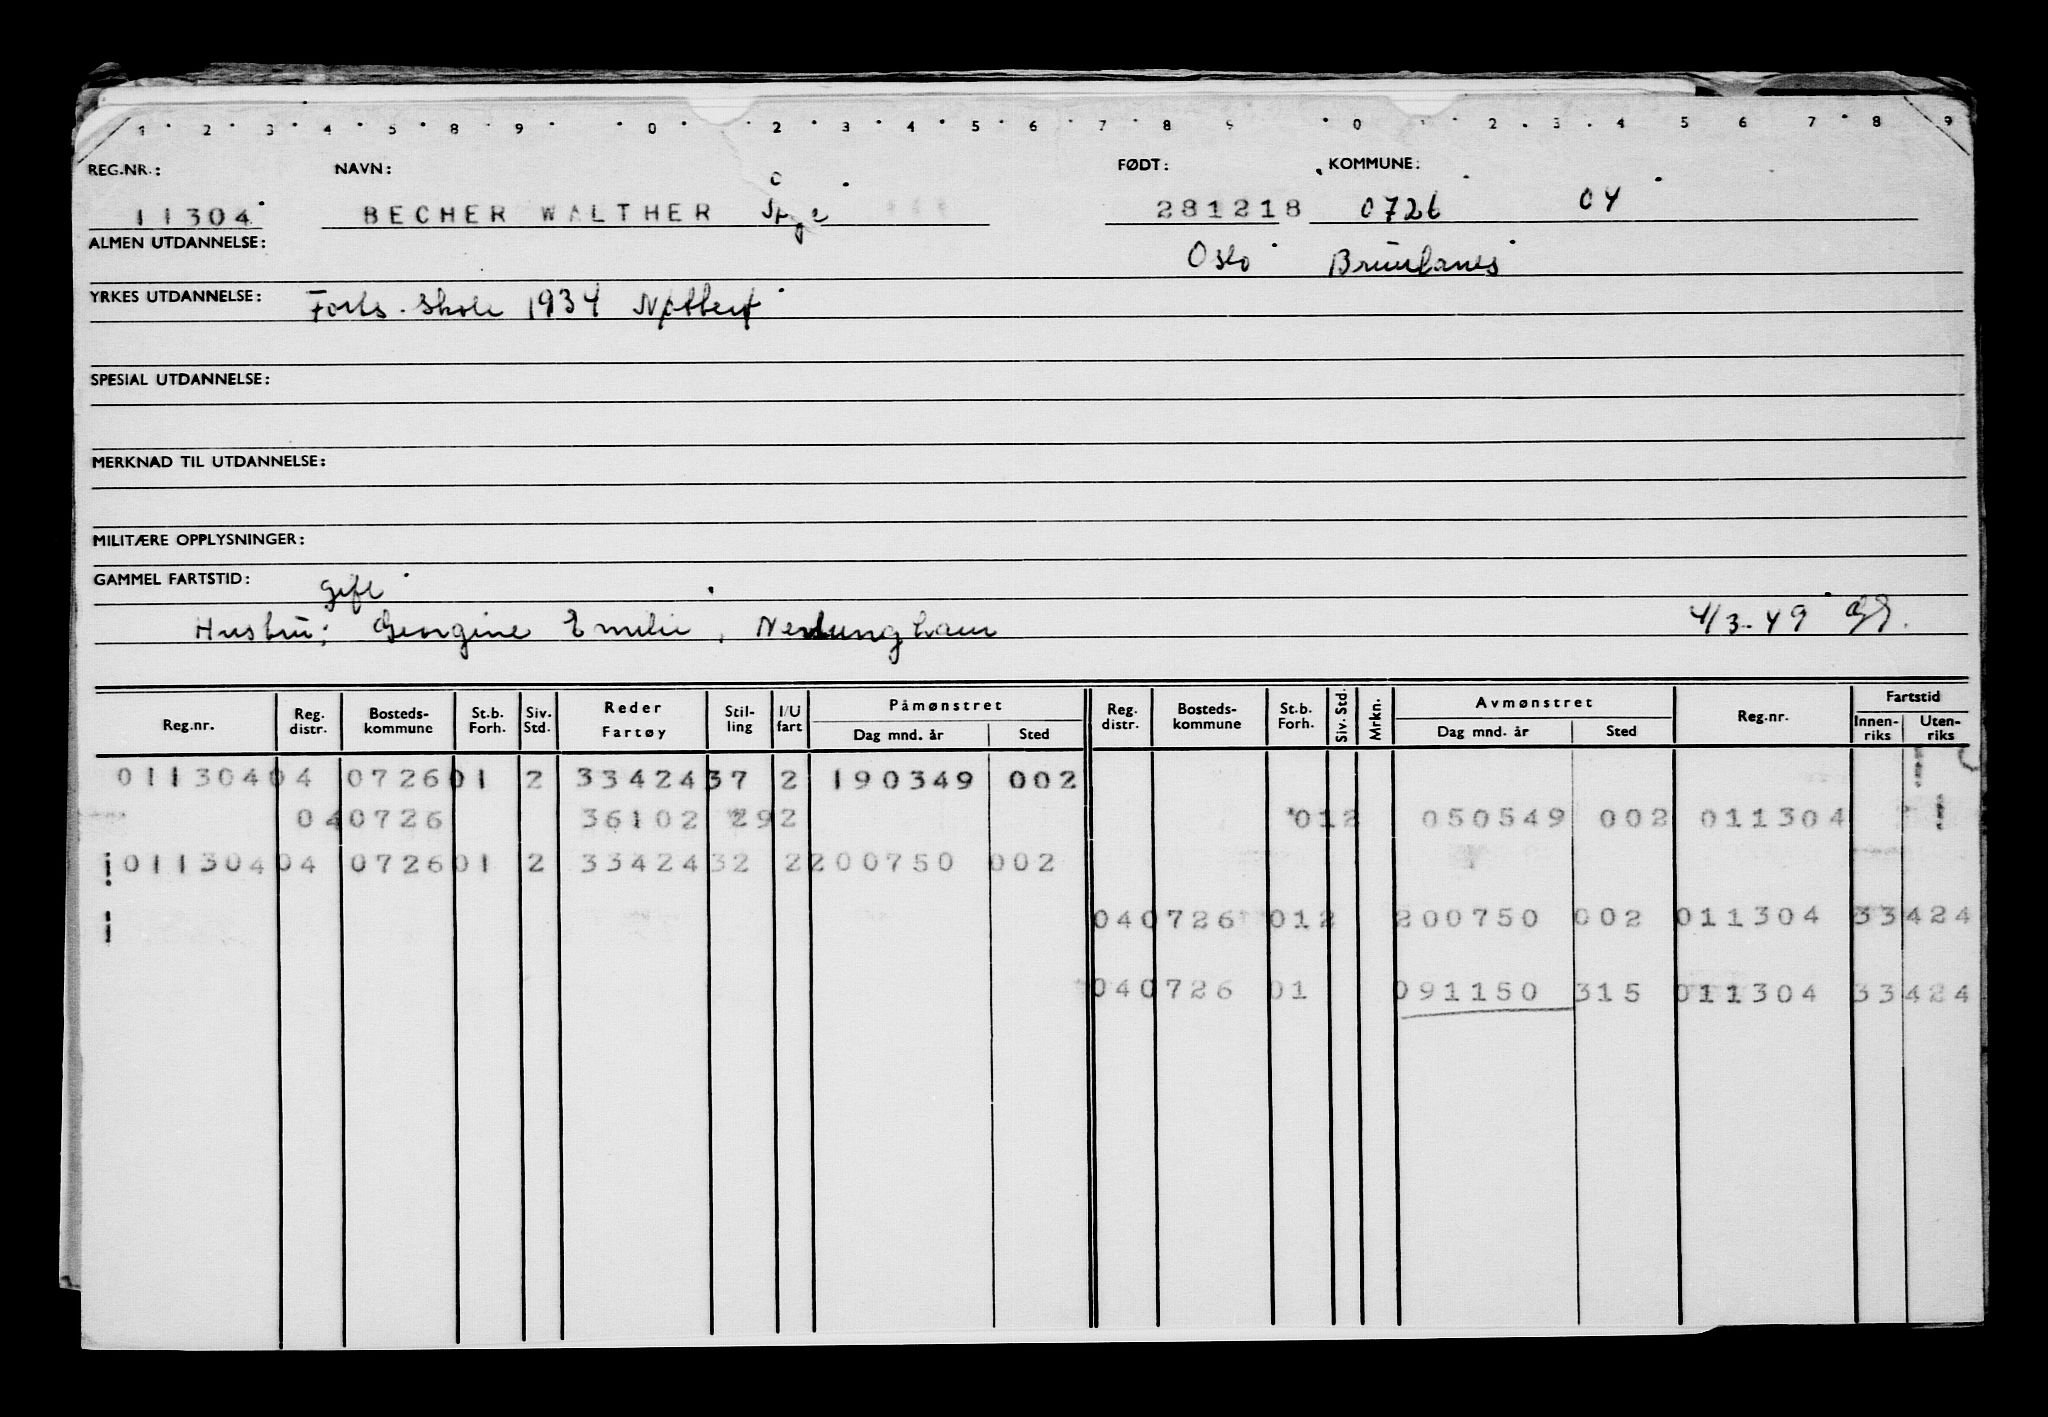 1 2 3 4 5 8 9 0 2 3 4 5 6 7 8 9 0 2 3 4 5 6 7 8 9
REG.NR.: NAVN: FØDT: KOMMUNE:
11304 BECHER WALTHER 281218 0726 04
ALMEN UTDANNELSE: Oslo Brunlanes
YRKES UTDANNELSE: Forts. skole 1934
SPESIAL UTDANNELSE:
MERKNAD TIL UTDANNELSE:
MILITÆRE OPPLYSNINGER:
GAMMEL FARTSTID: Gift
Hustru: Georgine Emilie, Nevlunghavn 4/3-49
Reg.nr. Reg. distr. Bosteds-kommune St.b. Forh. Siv. Std. Reder Fartøy Stil-ling I/U fart Påmønstret Dag mnd. år Sted Reg. distr. Bosteds-kommune St.b. Forh. Siv. Std. Mrkn. Avmønstret Dag mnd. år Sted Reg.nr. Fartstid Innen-riks Uten-riks
011304 04 0726 01 2 33424 37 2 190349 002
04 0726 36102 292 012 050549 002 011304
011304 04 0726 01 2 33424 32 2 200750 002
04 0726 012 200750 002 011304 33424
04 0726 01 091150 315 011304 33424